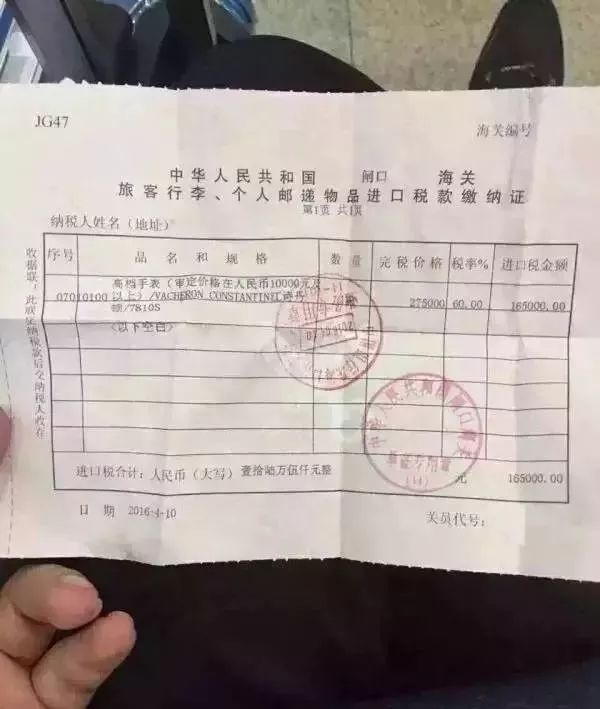 JG47
海关编号
中华人民共和国 闸口 海关
旅客行李、个人邮递物品进口税款缴纳证
第1页 共1页
纳税人姓名（地址）
序号 品名和规格 数量 完税价格 税率% 进口税金额
07010100 高档手表（审定价格在人民币10000元及
以上）/VACHERON CONSTANTIN江诗丹
顿/7810S 275000 60.00 165000.00
（以下空白）
进口税合计：人民币（大写）壹拾陆万伍仟元整 元 165000.00
日期 2016-4-10 关员代号：
中华人民共和国闸口海关